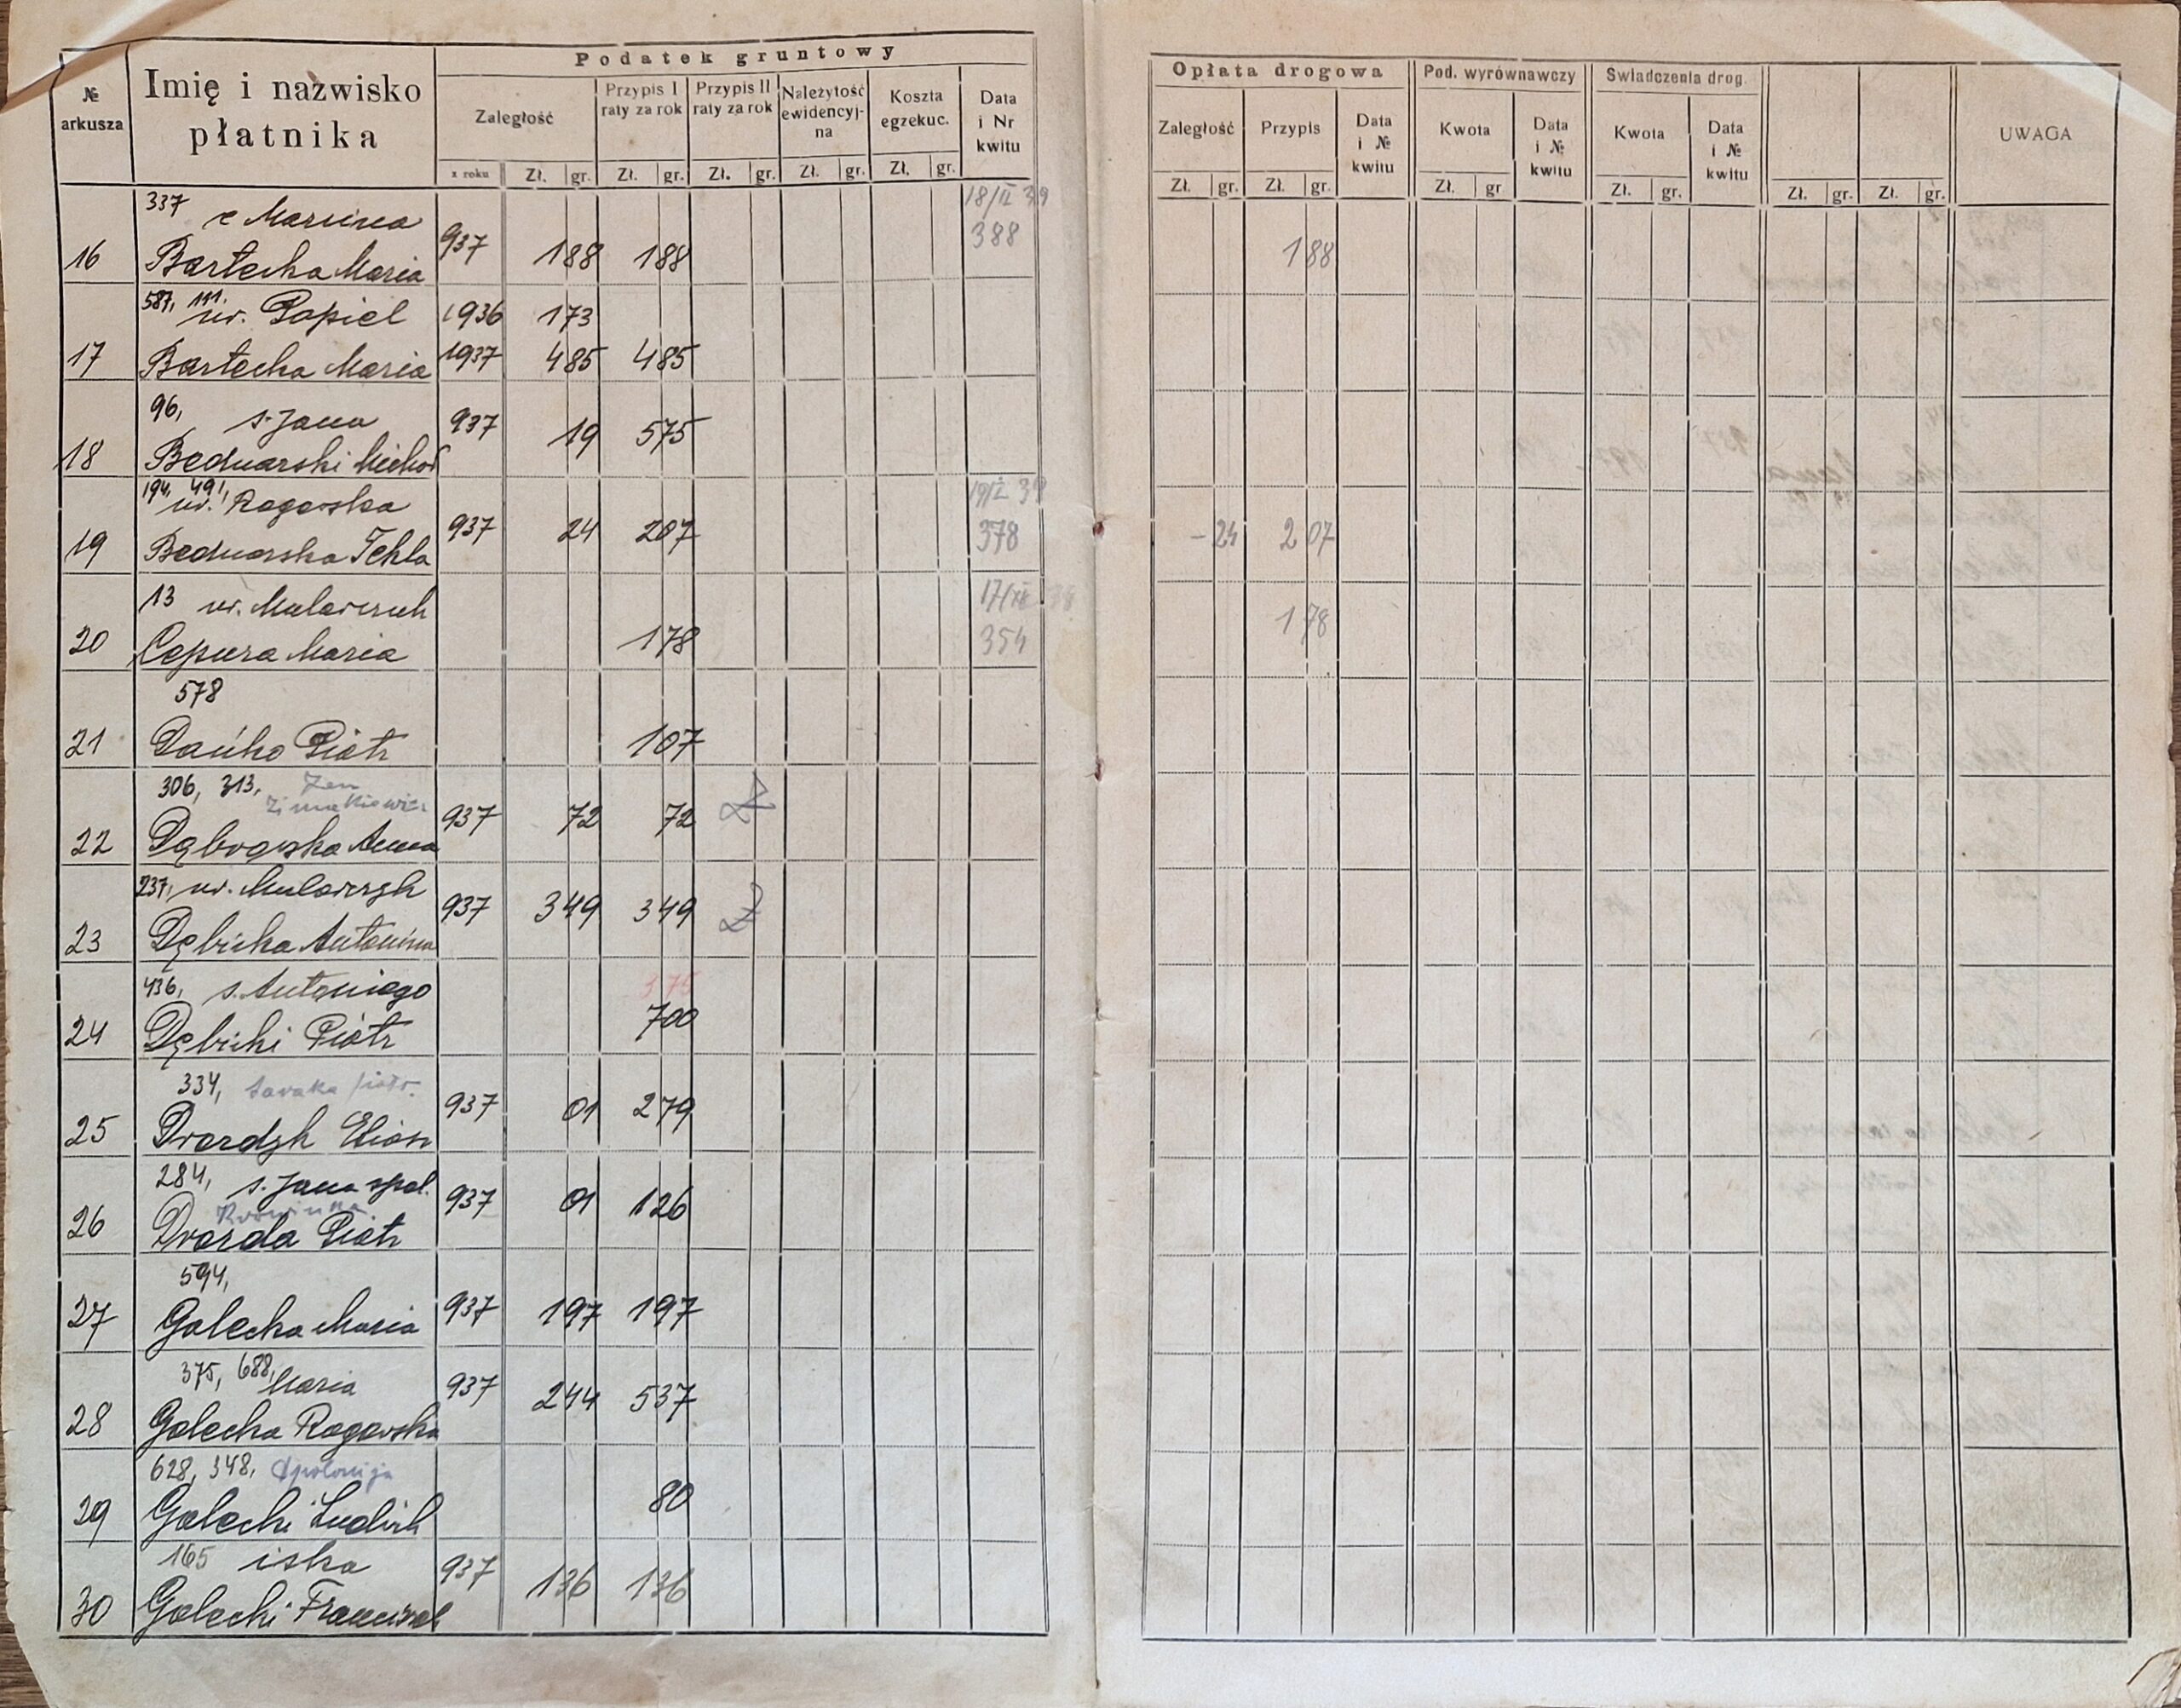 Podatek gruntowy
№ arkusza
Imię i nazwisko płatnika
Zaległość
Przypis I raty za rok
Przypis II raty za rok
Należytość ewidencyj-na
Koszta egzekuc.
Data i Nr kwitu
z roku Zł. gr. Zł. gr. Zł. gr. Zł. gr. Zł. gr.
Opłata drogowa
Pod. wyrównawczy
Świadczenia drog.
Zaległość
Przypis
Data i № kwitu
Kwota
Data i № kwitu
Kwota
Data i № kwitu
UWAGA
Zł. gr. Zł. gr. Zł. gr Zł. gr. Zł. gr. Zł. gr.
337 z Marcina 18/II 39
16 Bartecka Maria 937 188 188 388 188
587, 111, ur. Popiel 1936 173
17 Bartecka Maria 1937 485 485
96, s. Jana
18 Bednarski Michał 937 19 575
194, 491, ur. Rogowska
19 Bednarska Tekla 937 24 207 378 - 24 2 07
13 ur. Mularczuk
20 Cepura Maria 178 354 1 78
578
21 Dańko Piotr 107
306, 313, Jan
22 Anna 937 72 72
237, ur. Mularczyk
23 Dębicka Antonina 937 349 349
436, s. Antoniego
24 Dębicki Piotr 700
334,
25 937 01 279
284, s. Jana
26 Dwarda Piotr 937 01 126
594,
27 Golecka Maria 937 197 197
375, 688, Maria
28 Golecka Rogowska 937 244 537
628, 348, Apolonija
29 Golecki Ludwik 80
165
30 Golecki Franciszek 937 136 136